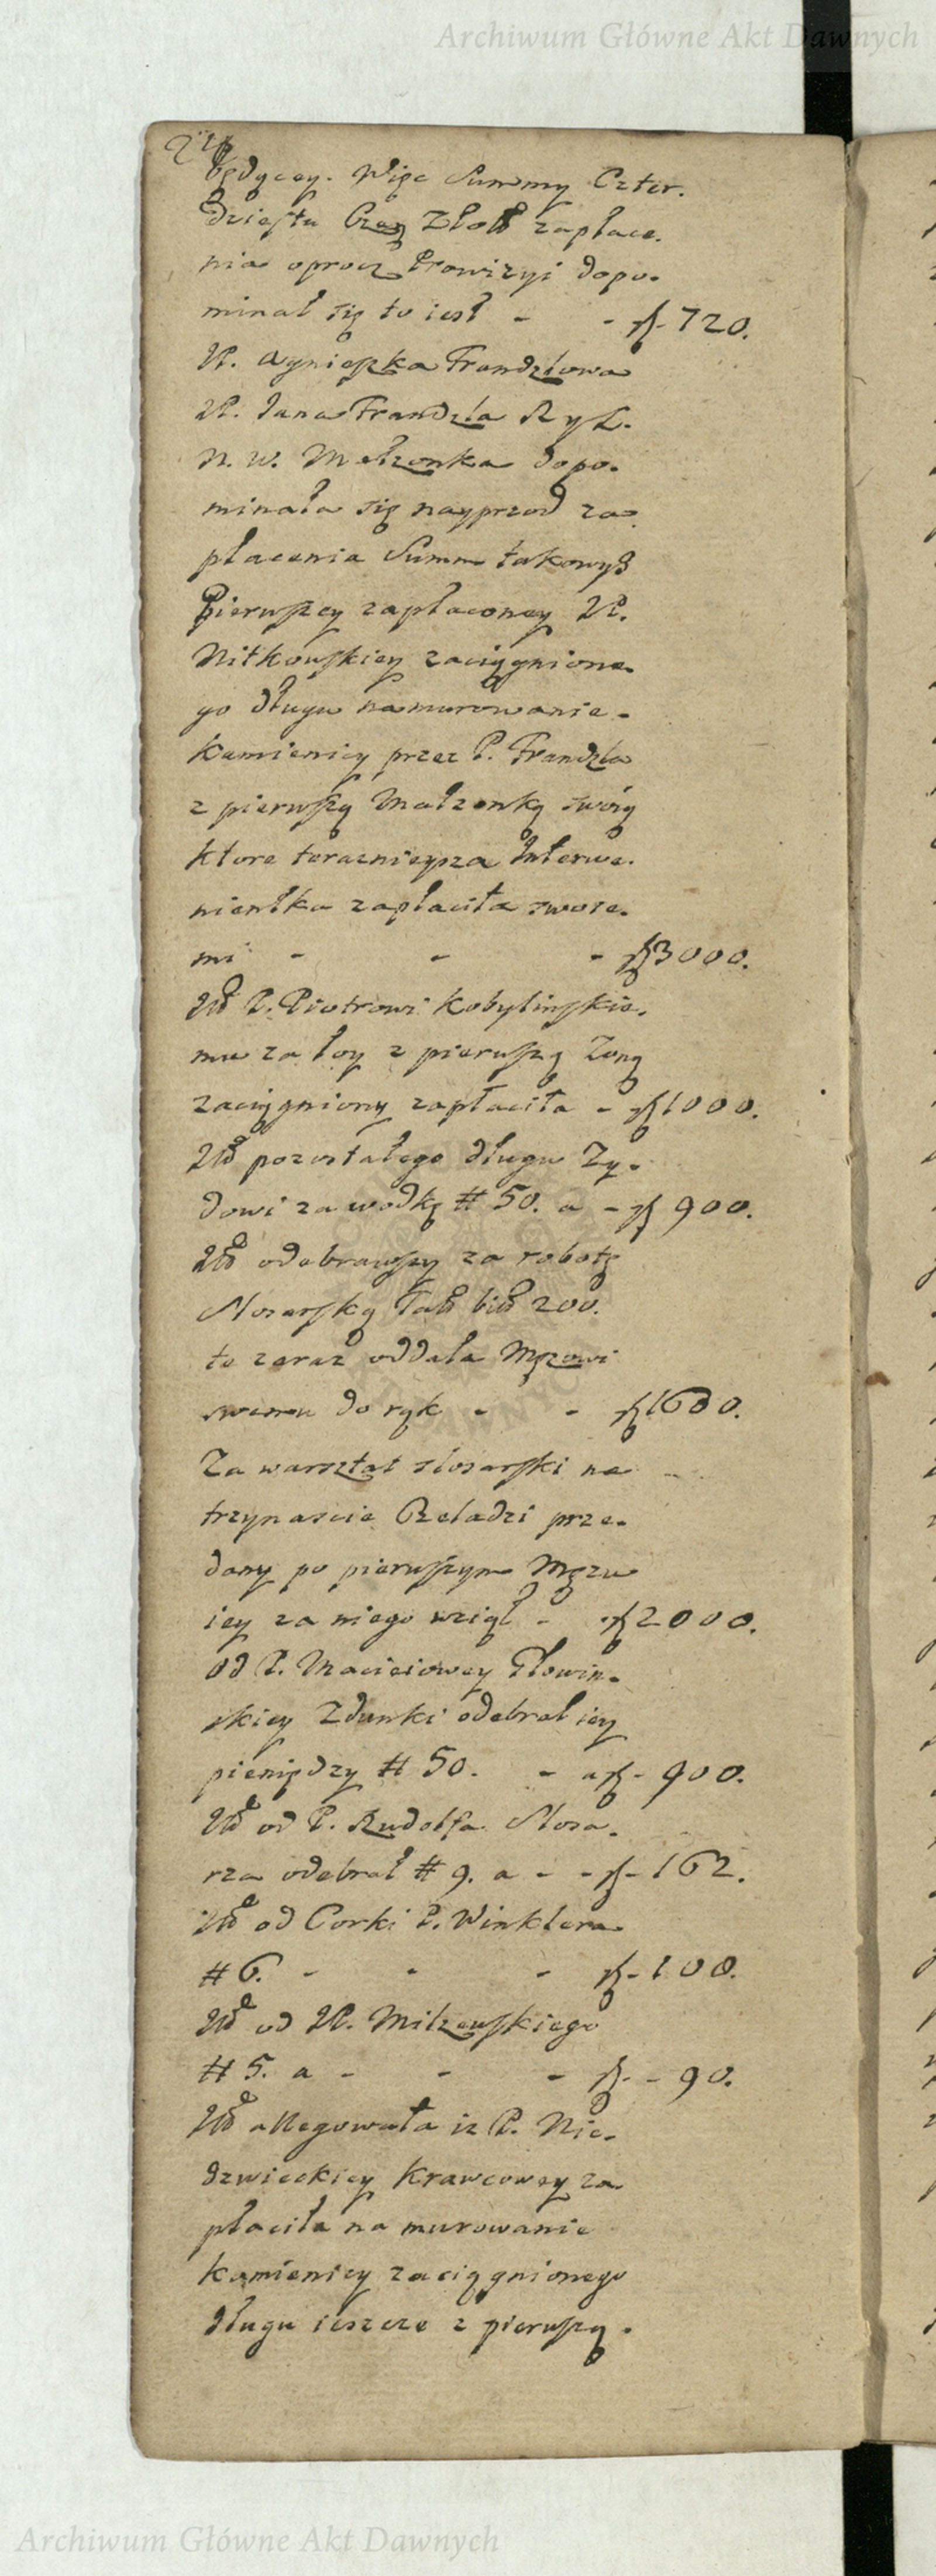 Archiwum Główne Akt Dawnych
będącey. Więc Summy Czter.
dziestu Czer Złott zapłace.
nia oprocz Prowizyi dopo.
minał się to iest - - zł - 720.
JP. Agnieszka Frandzlowa
JP. Jana Frandzla Ryt.
N. w. Małzonka dopo.
minała się nayprzod za
płacenia Summ takowych
Pierwszey zapłaconey JP.
Nitkowskiey zaciągnione.
go długu na murowanie -
Kamienicy przez P. Frandzla
z pierwszą Małzonką swoią
ktore teraznieysza Interwe.
nientka zapłaciła swoie.
mi - - - zł 3000.
Itd P. Piotrowi Kobylinskie.
mu za łoy z pierwszą Zoną
zaciągniony zapłaciła - zł 1000.
Itd pozostałego długu Zy.
dowi za wodkę # 50. a - zł 900.
Itd odebrawszy za robotę
Slosarską Tall bitt 200.
to zaraz oddała Męzowi
swemu do rąk - - zł 1600.
Za warsztat slosarski na
trzynascie Czeladzi prze.
dany po pierwszym Męzu
iey za niego wziął - zł 2000.
od P. Macieiowey Głowin.
skiey Zdunki odebrał iey
pieniędzy # 50. - a zł - 900.
Itd od P. Rudolfa Slosa.
rza odebrał # 9. a - - zł - 162.
Itd od Corki P. Winklera
# 6. - - - zł - 108.
Itd od JP. Milzewskiego
# 5. a - - - zł - - 90.
Itd allegowała iz P. Nie.
dzwieckiey Krawcowey za
płaciła na murowanie
kamienicy zaciągnionego
długu ieszcze z pierwszą.
Archiwum Główne Akt Dawnych